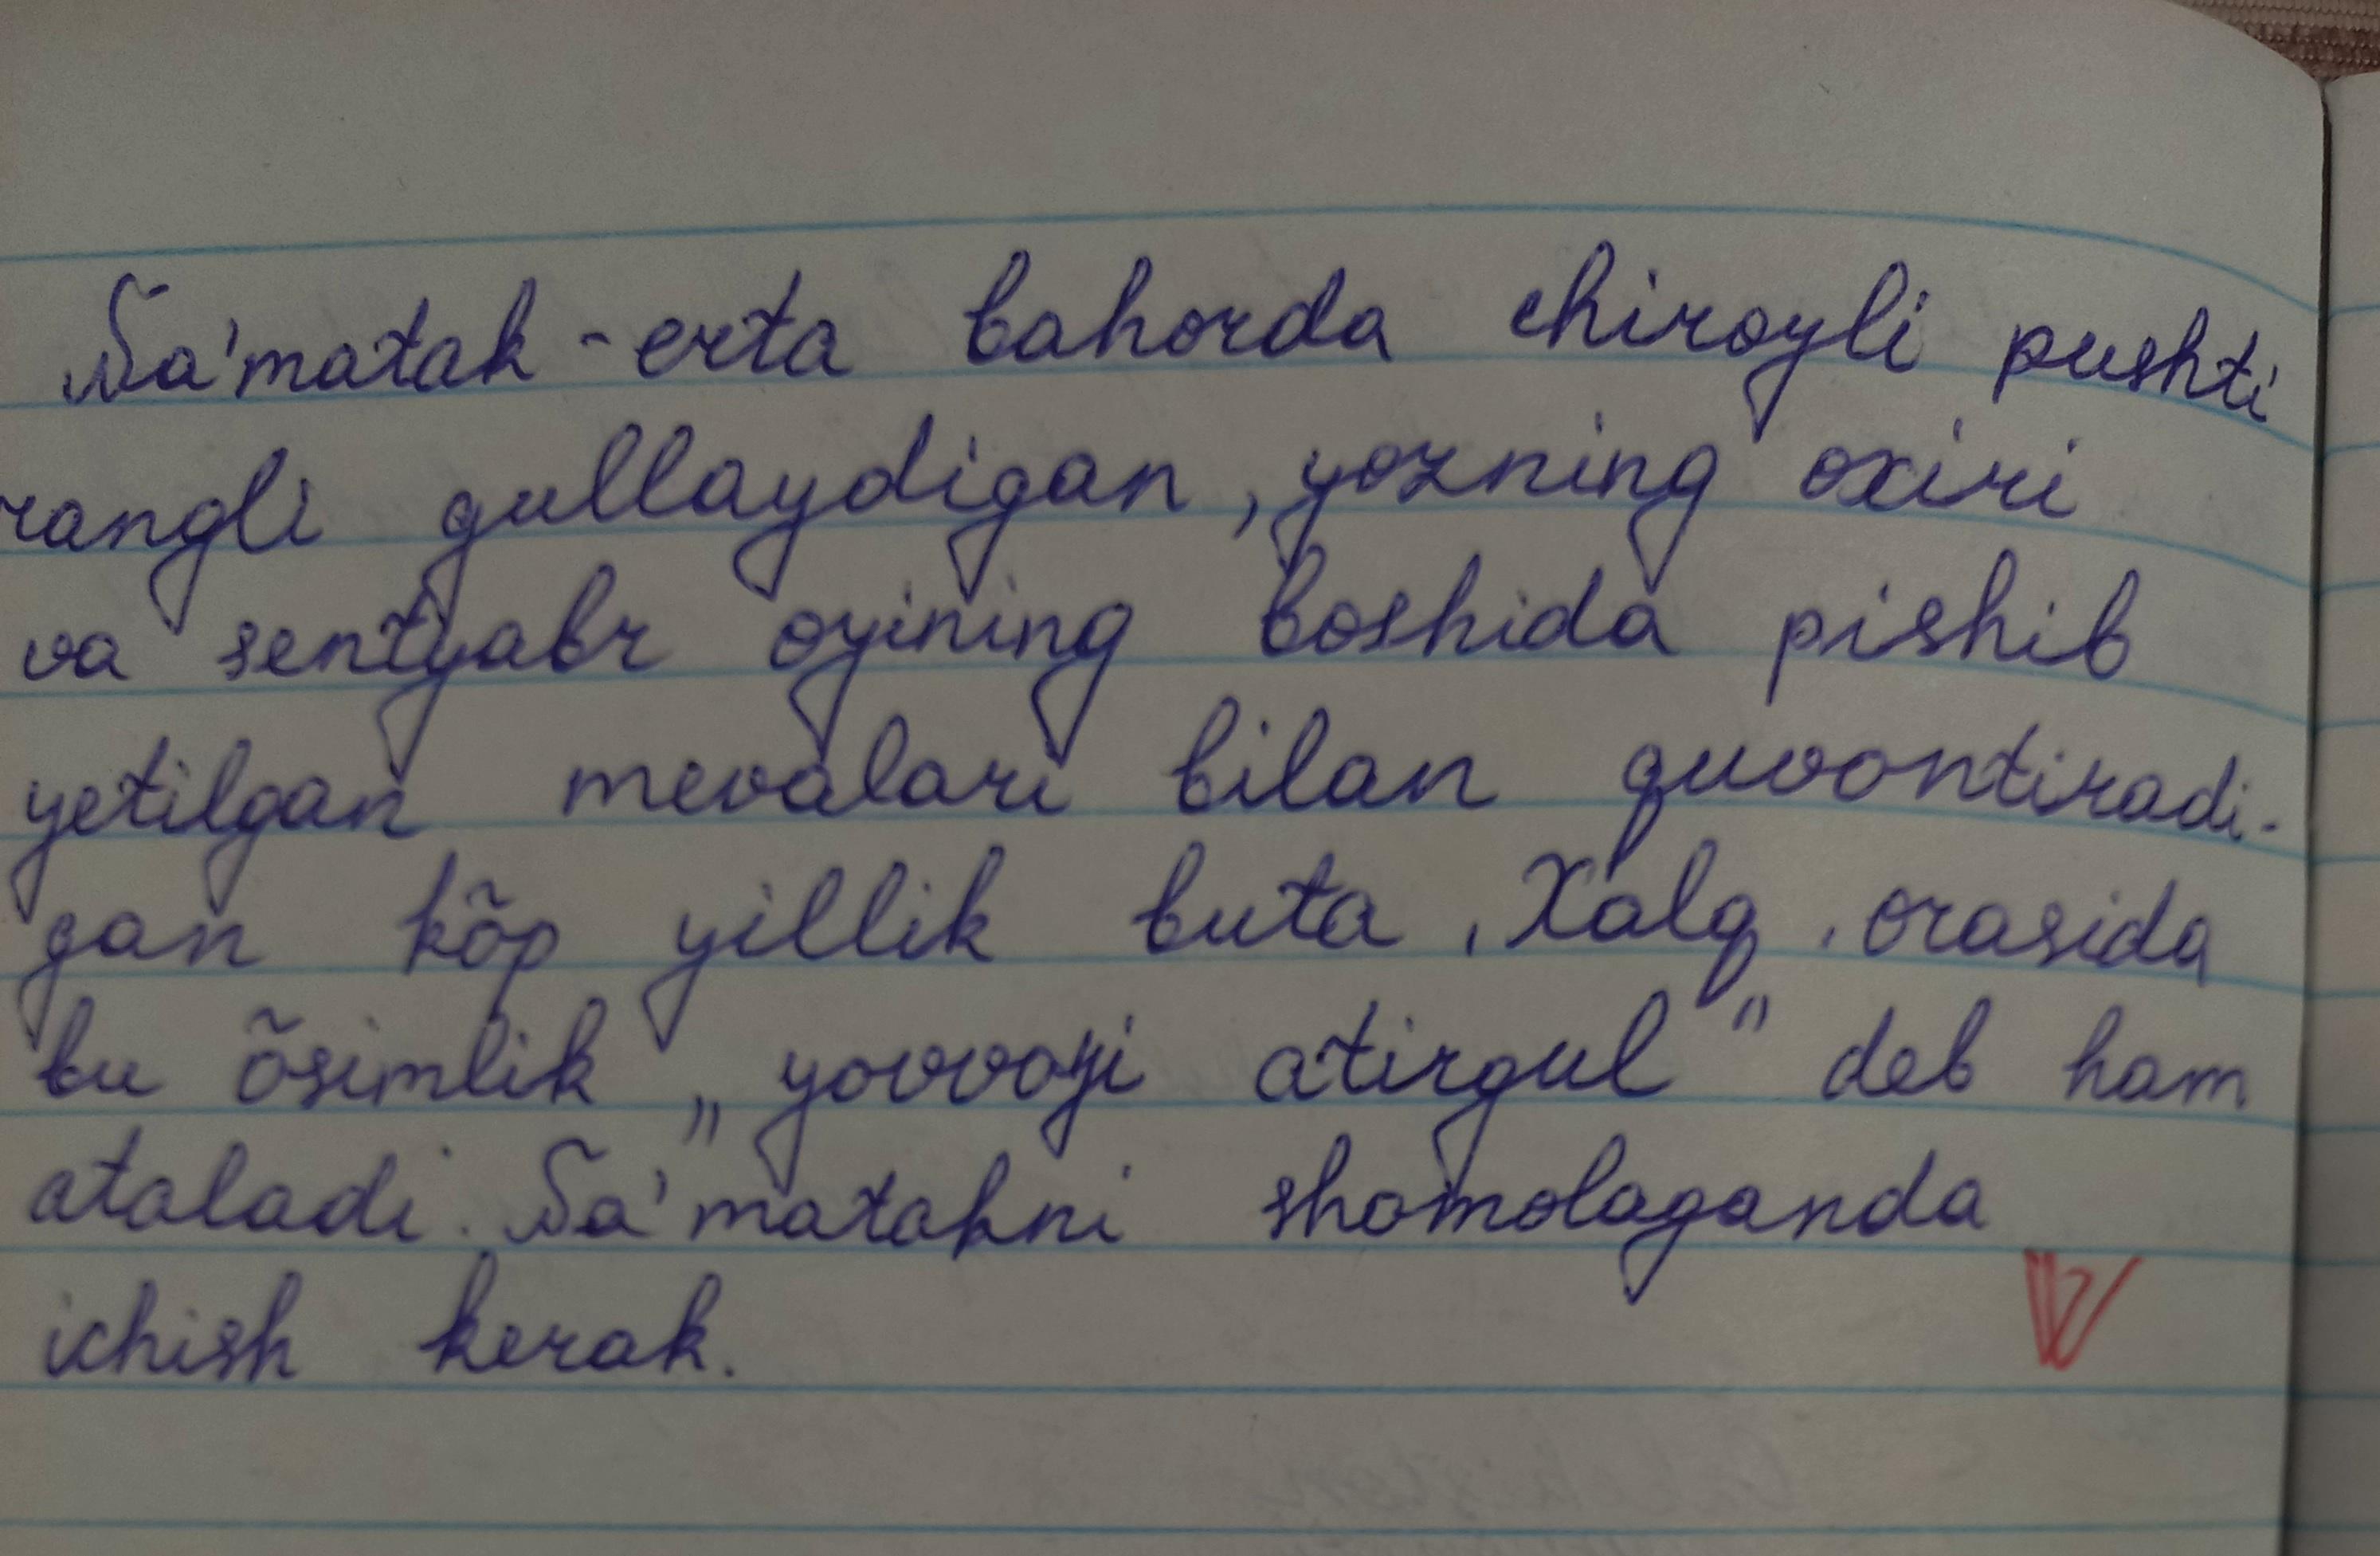 Na'matak - erta bahorda chiroyli pushti
rangli gullaydigan, yozning oxiri
va sentyabr oyining boshida pishib
yetilgan mevalari bilan quvontiradi-
gan kõp yillik buta. Xalq orasida
bu õsimlik „yovvoyi atirgul" deb ham
ataladi. Na'matakni shomolaganda
ichish kerak.